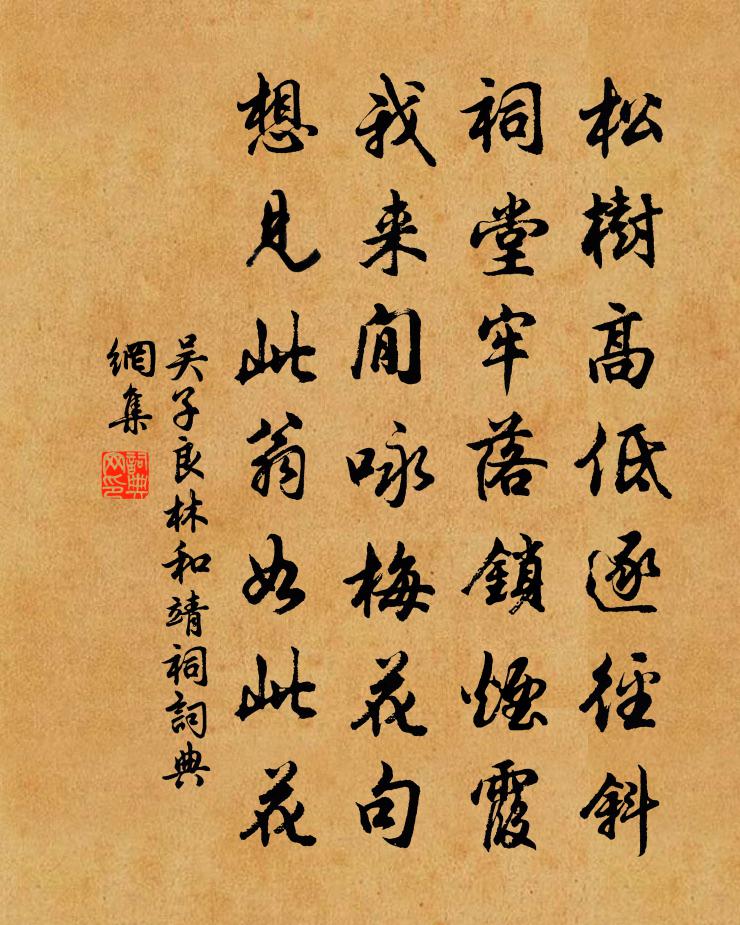 松樹高低逐徑斜
祠堂牢落鎖煙霞
我来閒咏梅花句
想見此翁如此花
吴子良林和靖祠詞典
網集
詞典
网印